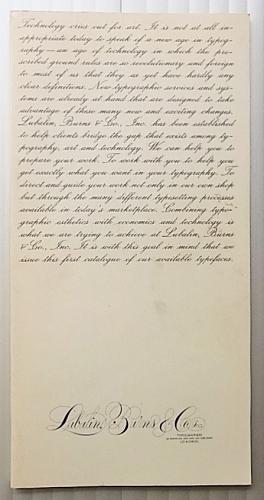 Technology cries out for art. It is not at all in-
appropriate today to speak of a new age in typog-
raphy—an age of technology in which the pro-
scribed ground rules are so revolutionary and foreign
to most of us that they as yet have hardly any
clear definitions. New typographic services and sys-
tems are already at hand that are designed to take
advantage of these many new and exciting changes.
Lubalin, Burns & Co., Inc. has been established
to help clients bridge the gap that exists among ty-
pography, art and technology. We can help you to
prepare your work. To work with you to help you
get exactly what you want in your typography. To
direct and guide your work not only in our own shop
but through the many different typesetting processes
available in today's marketplace. Combining typo-
graphic esthetics with economics and technology is
what we are trying to achieve at Lubalin, Burns
& Co., Inc. It is with this goal in mind that we
issue this first catalogue of our available typefaces.
Lubalin, Burns & Co., Inc.